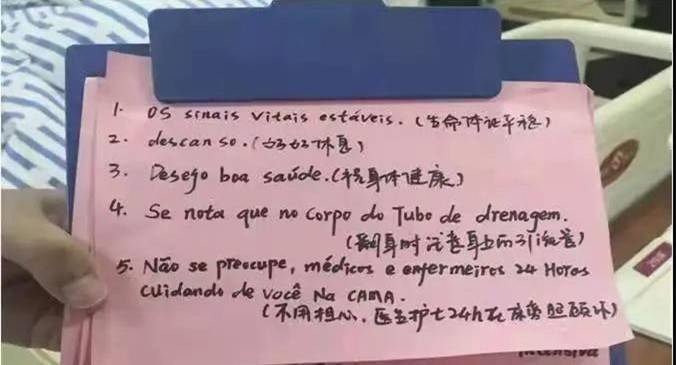 1. Os sinais vitais estáveis. (生命体征平稳)
2. descanso. (好好休息)
3. Desejo boa saúde. (祝身体健康)
4. Se nota que no corpo do Tubo de drenagem.
(翻身时注意身上的引流管)
5. Não se preocupe, médicos e enfermeiros 24 Horas
cuidando de você Na CAMA.
(不用担心,医生护士24h在床旁照顾你)
Intensiva